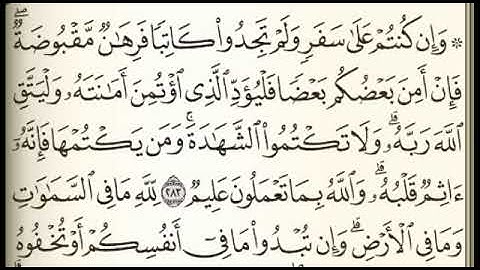 * وَإِن كُنتُمْ عَلَىٰ سَفَرٍ وَلَمْ تَجِدُوا۟ كَاتِبًا فَرِهَـٰنٌ مَّقْبُوضَةٌ ۖ
فَإِنْ أَمِنَ بَعْضُكُم بَعْضًا فَلْيُؤَدِّ ٱلَّذِى ٱؤْتُمِنَ أَمَـٰنَتَهُۥ وَلْيَتَّقِ
ٱللَّهَ رَبَّهُۥ ۗ وَلَا تَكْتُمُوا۟ ٱلشَّهَـٰدَةَ ۚ وَمَن يَكْتُمْهَا فَإِنَّهُۥٓ
ءَاثِمٌ قَلْبُهُۥ ۗ وَٱللَّهُ بِمَا تَعْمَلُونَ عَلِيمٌ ٢٨٣ لِّلَّهِ مَا فِى ٱلسَّمَـٰوَٰتِ
وَمَا فِى ٱلْأَرْضِ ۗ وَإِن تُبْدُوا۟ مَا فِىٓ أَنفُسِكُمْ أَوْ تُخْفُوهُ